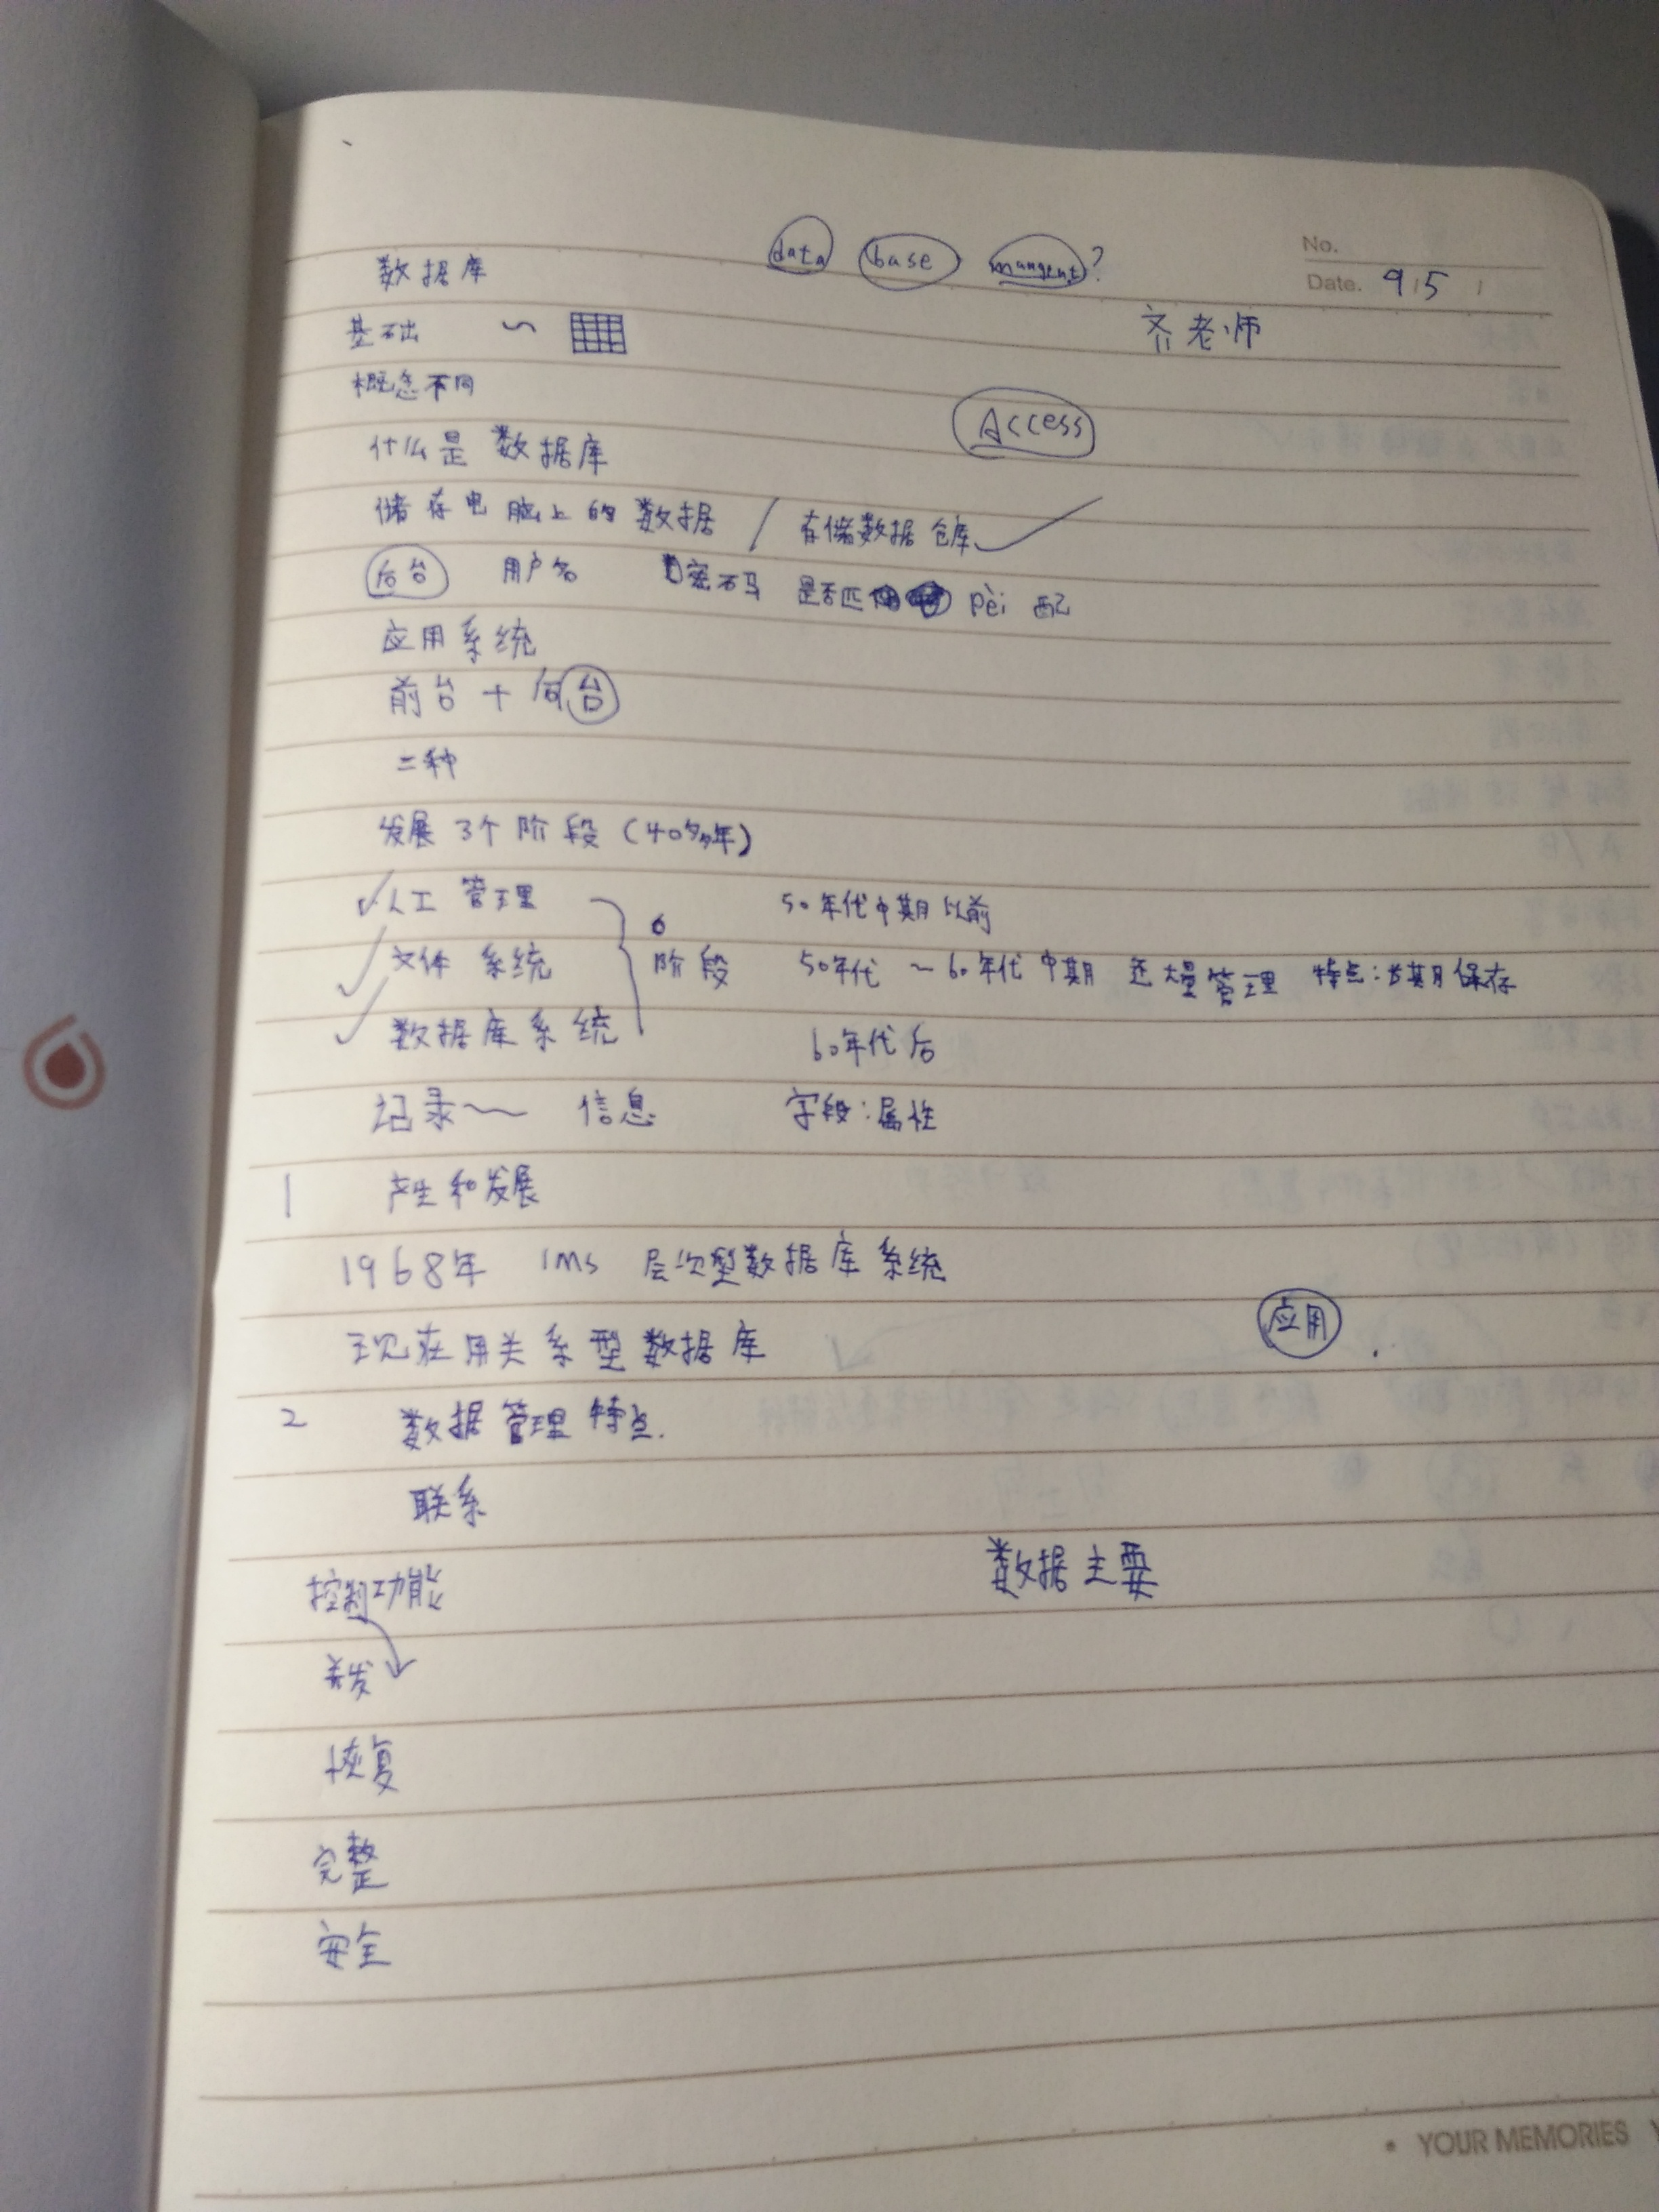 No.
数据库 data base mangent?
Date. 9/5 /
基础 ~ 齐老师
概念不同
Access
什么是 数据库
储存电脑上的数据 / 存储数据仓库
后台 用户名 密码 是否匹 pèi 配
应用系统
前台 + 后台
二种
发展 3个阶段 (40多年)
人工 管理 50年代中期以前
6
文件 系统 阶段 50年代 ~ 60年代中期 大量管理 特点:长期保存
数据库系统 60年代后
记录~ 信息 字段:属性
1 产生和发展
1968年 IMS 层次型数据库系统
应用
现在用关系型数据库
2 数据管理特点.
联系
数据主要
控制功能
并发
恢复
完整
安全
• YOUR MEMORIES